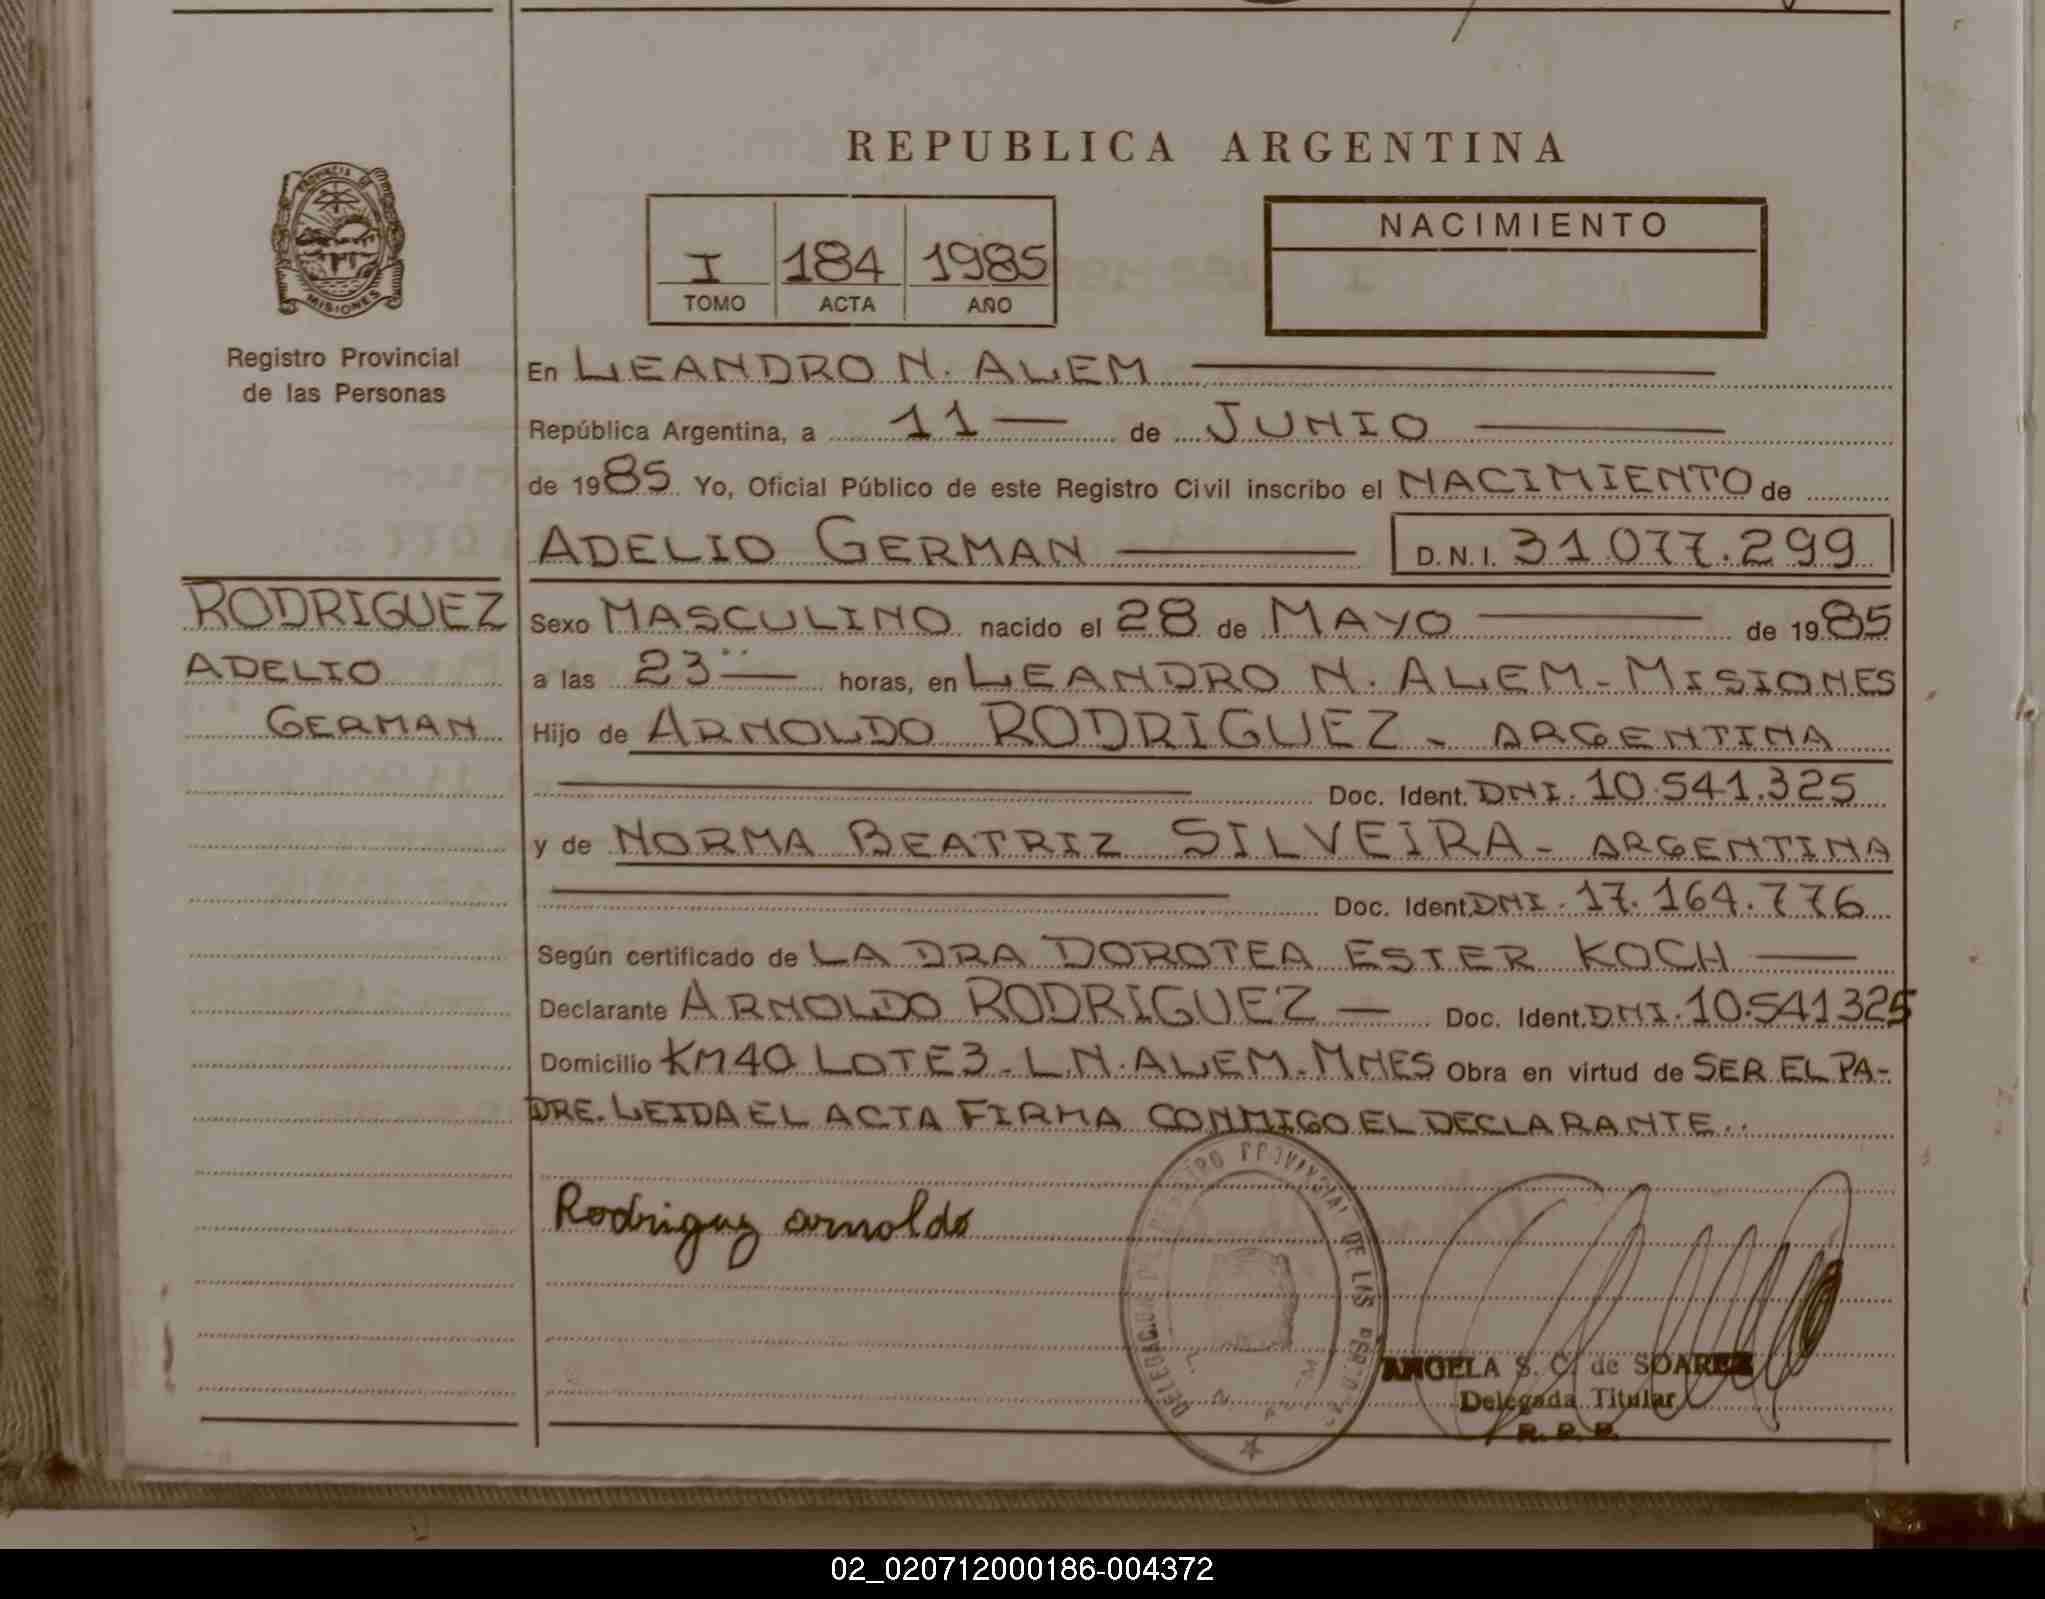 REPUBLICA ARGENTINA
PROVINCIA DE
MISIONES
Registro Provincial
de las Personas
I 184 1985
TOMO ACTA AÑO
NACIMIENTO
En LEANDRO N. ALEM
República Argentina, a 11 de JUNIO
de 1985 Yo, Oficial Público de este Registro Civil inscribo el NACIMIENTO de
ADELIO GERMAN D.N.I. 31.077.299
RODRIGUEZ
ADELIO
GERMAN
Sexo MASCULINO nacido el 28 de MAYO de 1985
a las 23 horas, en LEANDRO N. ALEM - MISIONES
Hijo de ARNOLDO RODRIGUEZ - ARGENTINA
Doc. Ident. DNI. 10.541.325
y de NORMA BEATRIZ SILVEIRA - ARGENTINA
Doc. Ident. DNI. 17.164.776
Según certificado de LA DRA DOROTEA ESTER KOCH
Declarante ARNOLDO RODRIGUEZ Doc. Ident. DNI. 10.541325
Domicilio KM40 LOTE3 - L.N. ALEM - MNES Obra en virtud de SER EL PA-
DRE. LEIDA EL ACTA FIRMA CONMIGO EL DECLARANTE..
Rodriguez arnoldo
PROVINCIAL DE LAS
ANGELA S. C. de SOAREZ
Delegada Titular
R. P. P.
02_020712000186-004372